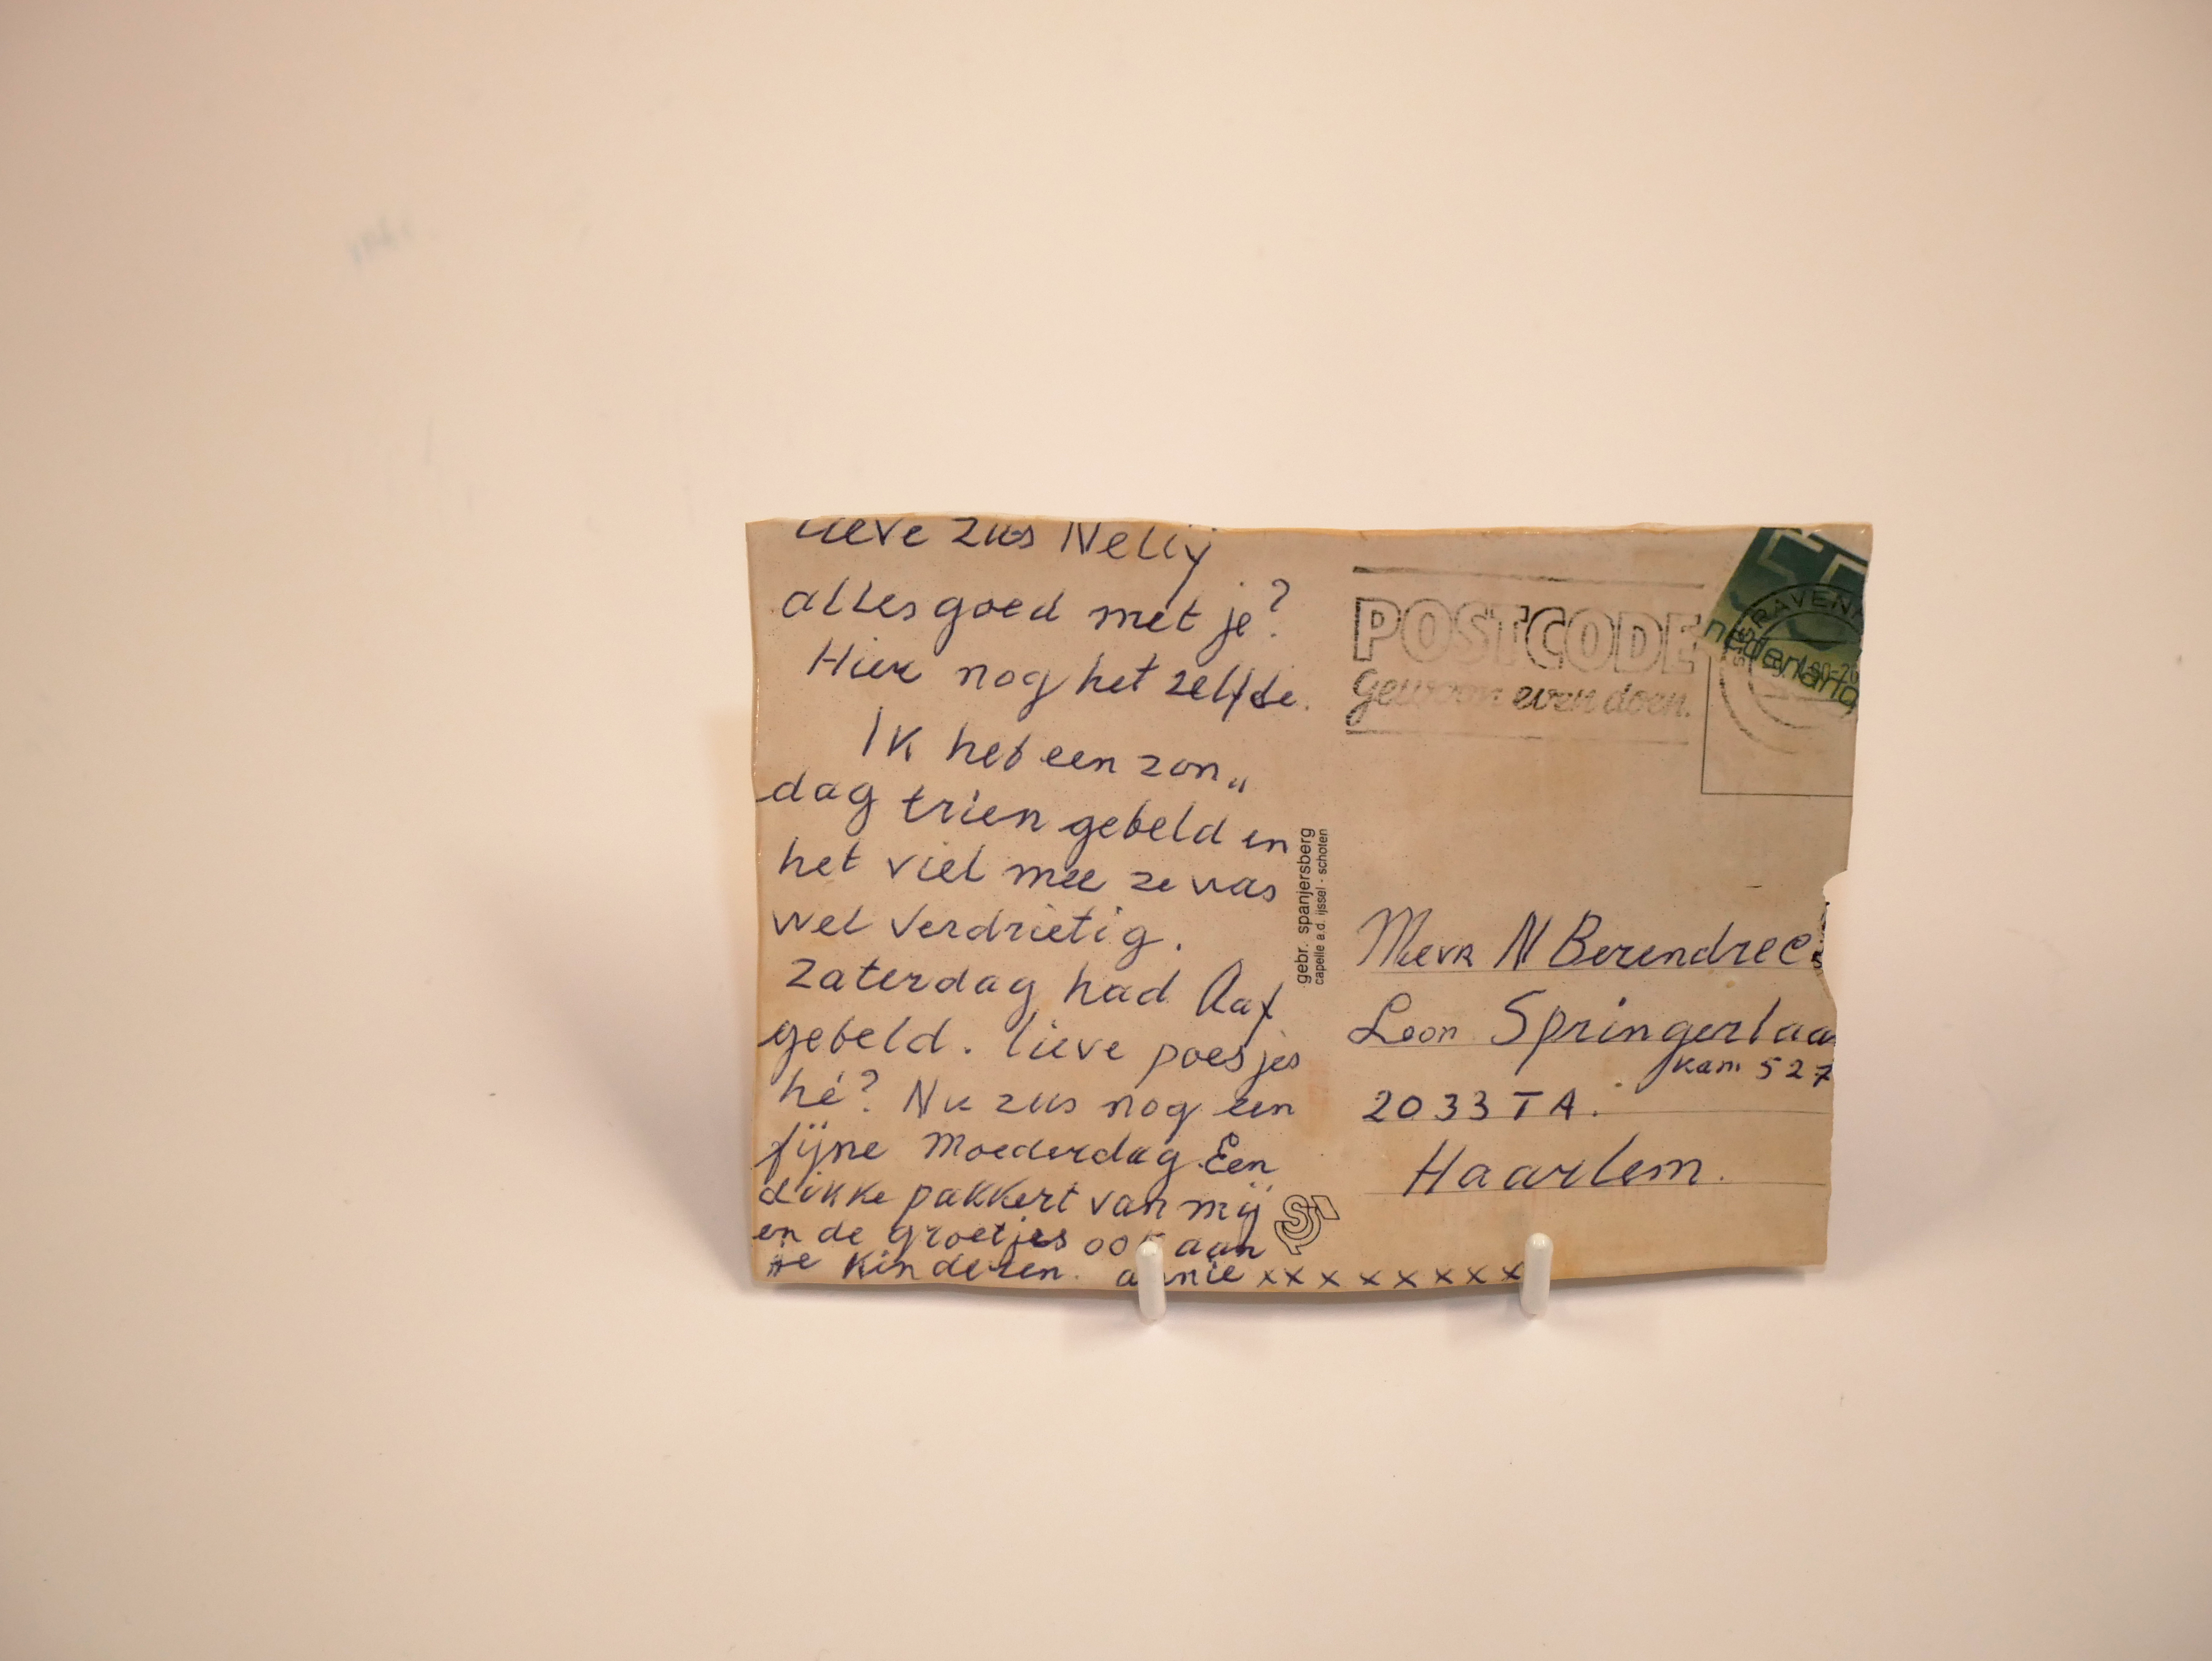 lieve zus Nellij
alles goed met je?
Hier nog het zelfde.
Ik heb een zon„
dag trien gebeld en
het viel mee ze was
wel verdrietig.
zaterdag had Aaf
gebeld. lieve poesjes
hé? Nu zus nog een
fijne moederdag. Een
dikke pakkert van mij
en de groetjes ook aan
de kinderen. annie xxxxxxxxx
gebr. spanjersberg
capelle a.d. ijssel - schoten
POSTCODE
gewoon even doen.
55
nederland
Mevr N Berendrec
Leon Springerlaa
kam 527
2033 TA.
Haarlem.